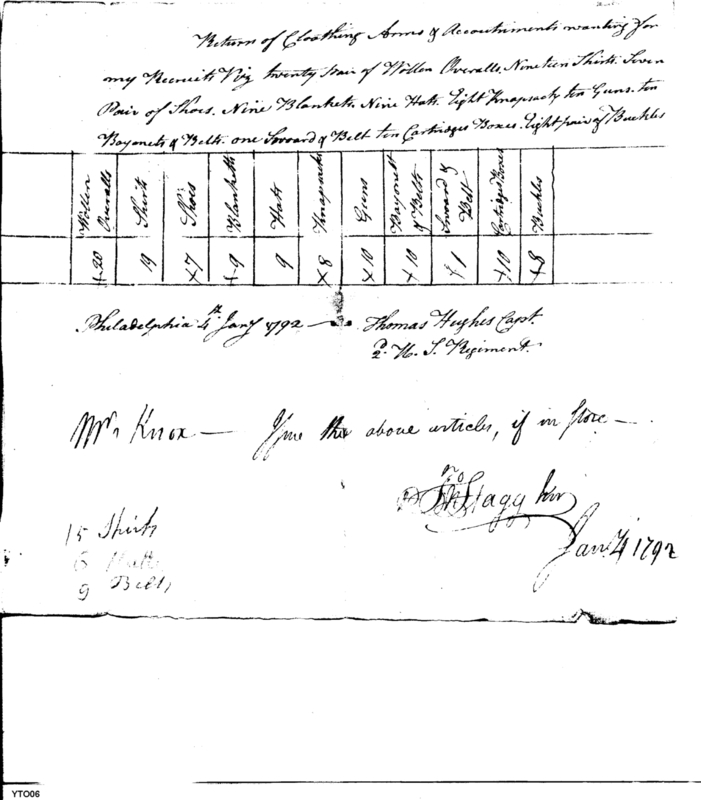 Return of Cloathing Arms & Accoutriments wanting for
my Recruits Viz twenty pair of Wollen Overalls. Nineteen Shirts. Seven
Pair of Shoes. Nine Blankets. Nine Hats. Eight Knapsacks ten Guns. ten
Bayonets & Belts. one Sword & Belt ten Cartridges Boxes. Eight pair of Buckles
Wollen Overalls Shirts Shoes Blankets Hats Knapsacks Guns Bayonets & Belts Sword & Belt Cartridges Boxes Buckles
+20 19 +7 +9 9 +8 +10 +10 +1 +10 +8
Philadelphia 4th Jany 1792 — Thomas Hughes Capt.
2d U. S. Regiment.
Mr. Knox — Issue the above articles, if in Store —
Jno Stagg Junr
Jany 4 1792
15 Shirts
6
9 Belts
YTO06